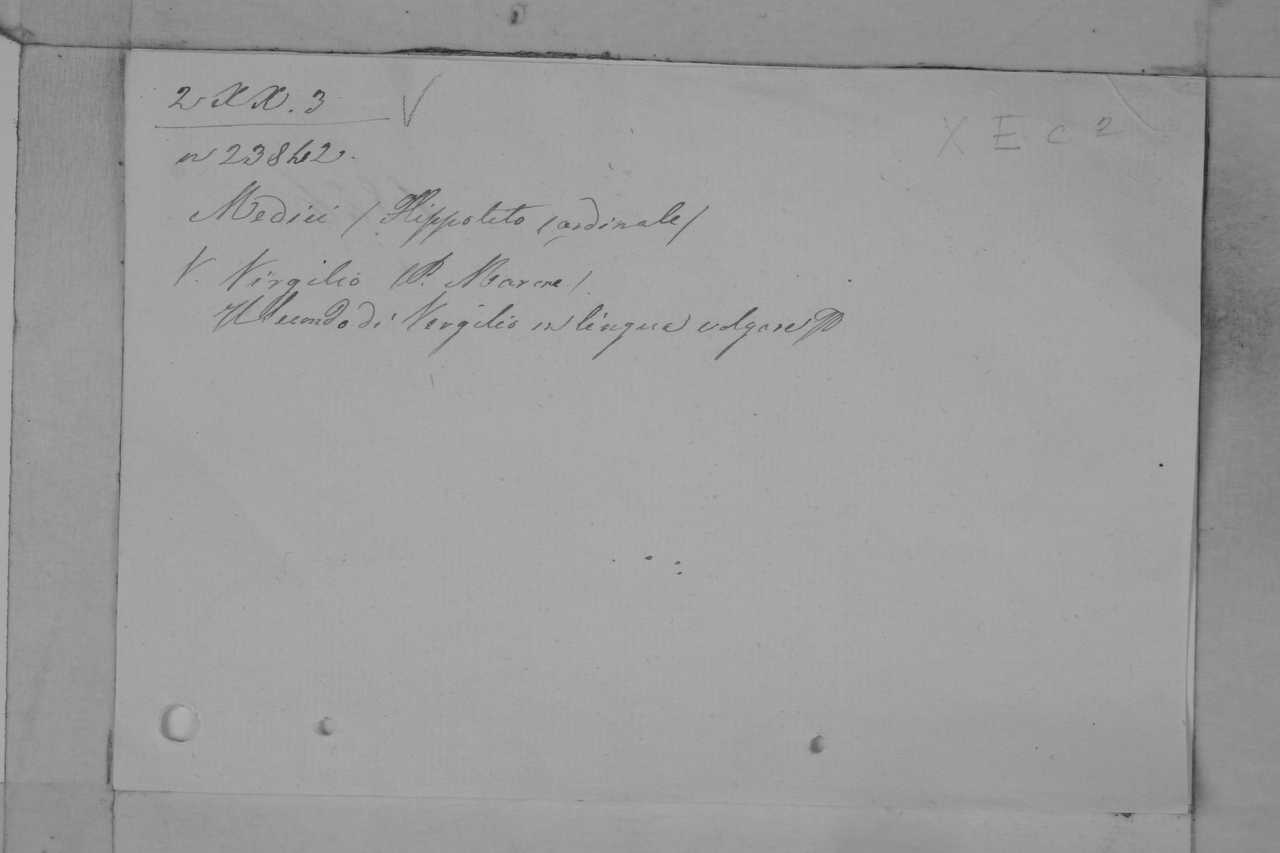 2 XX. 3 V
X E C 2
n 23842.
Medici (Hippolito Cardinale)
V. Virgilio (P. Marone)
Il Secondo di Vergilio in lingua volgare